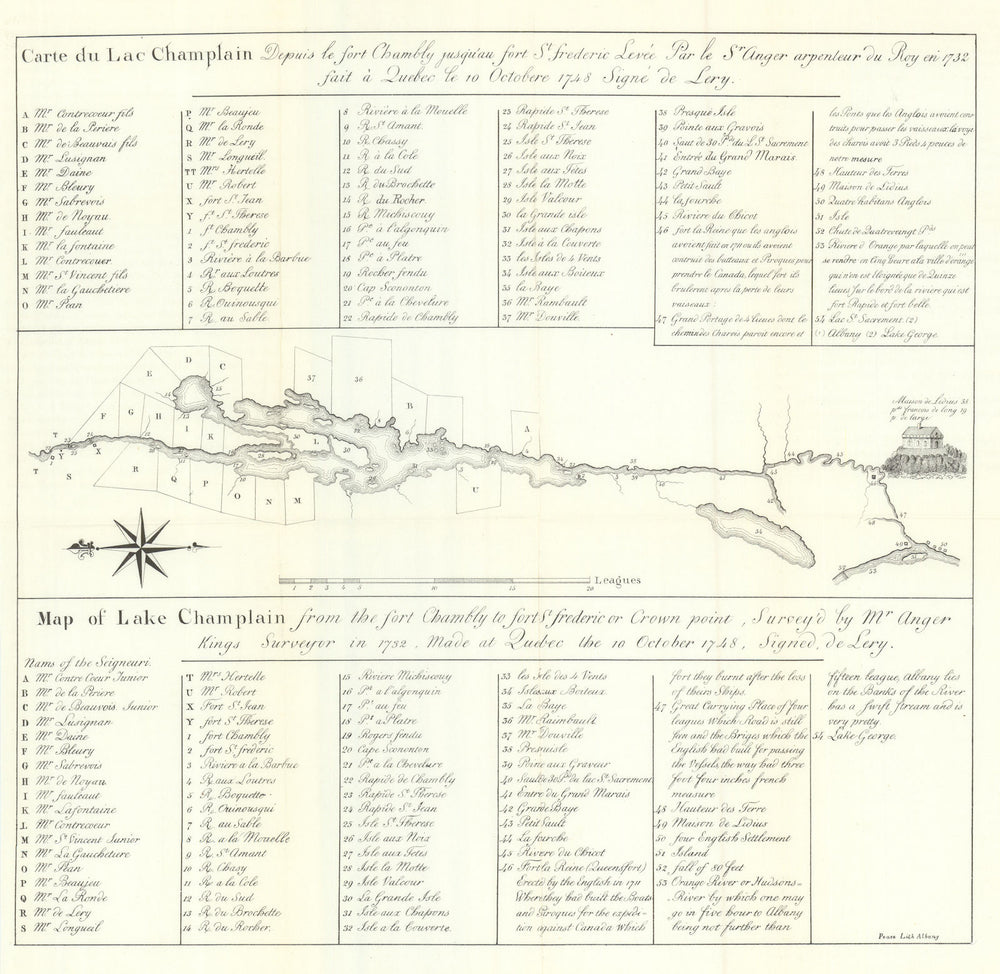 Carte du Lac Champlain Depuis le fort Chambly jusqu'au fort St. frederic Levée Par le Sr. Anger arpenteur du Roy en 1732
fait à Quebec le 10 Octobere 1748 Signé de Lery.
A Mr. Contrecoeur fils
B Mr. de la Periere
C Mr. de Beauvais fils
D Mr. Lusignan
E Mr. Daine
F Mr. Bleury
G Mr. Sabrevois
H Mr. de Noyau
I Mr. fauleaut
K Mr. la fontaine
L Mr. Contrecouer
M Mr. St. Vincent fils
N Mr. la Gauchetiere
O Mr. Péan
P Mr. Beaujeu
Q Mr. la Ronde
R Mr. de Léry
S Mr. Longueil
TT Mrs. Hertelle
U Mr. Robert
X fort St. Jean
Y ft. St. Therese
1 ft. Chambly
2 ft. St. frederic
3 Rivière à la Barbue
4 Rr. aux Loutres
5 R. Boquette
6 R. Ouinousqui
7 R. au Sable
8 Rivière à la Mouelle
9 R. St. Amant
10 R. Chassy
11 R. à la Cole
12 R. du Sud
13 R. du Brochette
14 R. du Rocher
15 R. Michiscouy
16 Pte. à l'algonquin
17 Pte. au feu
18 Pte. à Platre
19 Rocher fendu
20 Cap Scononton
21 Pte. à la Cheveliure
22 Rapide de Chambly
23 Rapide St. Therese
24 Rapide St. Jean
25 Isle St. Therese
26 Isle aux Noix
27 Isle aux Fêtes
28 Isle la Motte
29 Isle Valcour
30 la Grande isle
31 Isle aux Chapons
32 Isle à la Couverte
33 les Isles de 4 Vents
34 Isle aux Boiteux
35 la Baye
36 Mr. Rambault
37 Mr. Douville
38 Presqué Isle
39 Pointe aux Gravois
40 Saut de 30 Pds. du L. St. Sacrement
41 Entrée du Grand Marais
42 Grand Baye
43 Petit Sault
44 la fourche
45 Rivière du Chicot
46 fort la Reine que les anglois
avoient fait en 1711 où ils avoient
construit des bateaux et Piroques pour
prendre le Canada, lequel fort ils
brulerent apres la perte de leurs
vaiseaux:
47 Grand Portage de 4 lieues dont le
chemin des Charois paroit encore et
les Ponts que les Anglois avoient cons
truits pour passer les vaiseaux la voye
des charois avoit 3 Pieds 4 pouces de
notre mesure
48 Hauteur des Terres
49 Maison de Lidius
50 Quatre habitans Anglois
51 Isle
52 Chute de Quatrevingt Pds.
53 Riviere d'Orange par laquelle on peut
se rendre en Cinq heure a la ville d'orange
qui n'en est éloignée que de Quinze
lieues sur le bord de la rivière qui est
fort Rapide et fort belle.
54 Lac St. Sacrement. (2)
(1) Albany (2) Lake George.
Maison de Lidius 58
pds. francois de long 19
p de large
Leagues
1 2 3 4 5 10 15 20
Map of Lake Champlain from the fort Chambly to fort St. frederic or Crown point, Survey'd by Mr. Anger
Kings Surveyor in 1732, Made at Quebec the 10 October 1748, Signed, de Lery.
Nams of the Seigneuri.
A Mr. Contre Coeur Junior
B Mr. de la Perière
C Mr. de Beauvois Junior
D Mr. Lusignan
E Mr. Daine
F Mr. Bleury
G Mr. Sabrevois
H Mr. de Noyau
I Mr. fauleaut
K Mr. Lafontaine
L Mr. Contrecoeur
M Mr. St. Vincent Junior
N Mr. La Gauchetiere
O Mr. Péan
P Mr. Beaujeu
Q Mr. La Ronde
R Mr. de Léry
S Mr. Longueil
T Mrs. Hertelle
U Mr. Robert
X Fort St. Jean
Y fort St. Therese
1 fort Chambly
2 fort St. fréderic
3 Riviere a la Barbue
4 R. aux Loutres
5 R. Boquette
6 R. Ouinousqui
7 R. au Sable
8 R. a la Mouelle
9 R. St. Amant
10 R. Chasy
11 R. a la Cole
12 R. du Sud
13 R. du Brochette
14 R. du Rocher
15 Riviere Michiscouy
16 Pt. a l'algonquin
17 Pt. au feu
18 Pt. a Platre
19 Rogers fendu
20 Cape Scononton
21 Pte. a la Chevelure
22 Rapide de Chambly
23 Rapide St. Therese
24 Rapide St. Jean
25 Isle St. Therese
26 Isle aux Noix
27 Isle aux Fetes
28 Isle la Motte
29 Isle Valcour
30 La Grande Isle
31 Isle aux Chapons
32 Isle a la Couverte
33 les isle des 4 Vents
34 Isles aux Boiteux
35 La Baye
36 Mr. Raimbault
37 Mr. Douville
38 Presquisle
39 Poine aux Graveur
40 Sault de 30 Pds. du lac St. Sacrement
41 Entre du Grand Marais
42 Grande Baye
43 Petit Sault
44 La fourche
45 Rivere du Chicot
46 Fort la Reine (Queens fort)
Erected by the English in 1711
Where they had built the Boats
and Piroques for the expedi-
tion against Canada Which
fort they burnt after the loss
of theirs Ships.
47 Great Carrying Place of four
leagues Which Road is still
fun and the Briges which the
English had built for passing
the Vessels, the way had three
foot four inches french
measure
48 Hauteur des Terre
49 Maison de Lidius
50 four English Settlement
51 Island
52 fall of 80 feet
53 Orange River or Hudsons-
River by which one may
go in five hour to Albany
being not further than
fifteen league, Albany lies
on the Banks of the River
has a Swift Stream and is
very pretty.
54 Lake George.
Pease Lith Albany